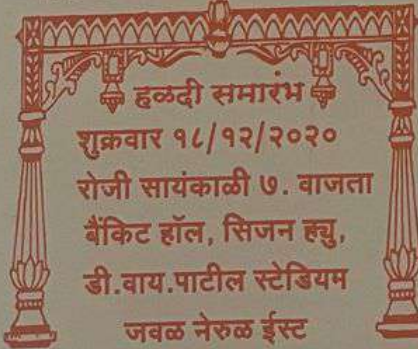 हळदी समारंभ
शुक्रवार १८/१२/२०२०
रोजी सायंकाळी ७. वाजता
बैंकिट हॉल, सिजन ह्यु,
डी.वाय.पाटील स्टेडियम
जवळ नेरुळ ईस्ट